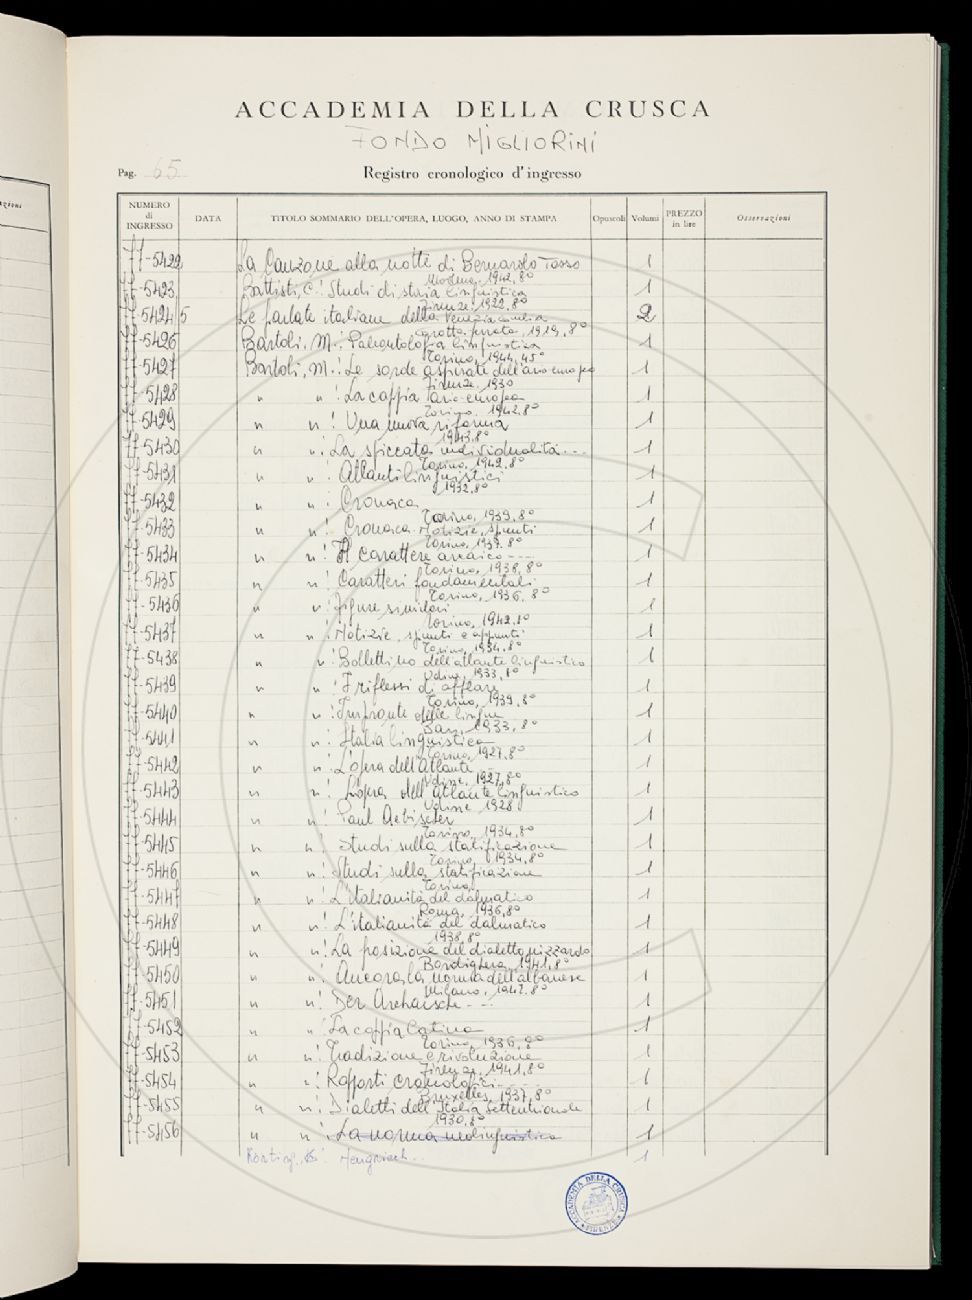 ACCADEMIA DELLA CRUSCA
FONDO MIGLIORINI
Pag. 65
Registro cronologico d'ingresso
NUMERO di INGRESSO DATA TITOLO SOMMARIO DELL'OPERA, LUOGO, ANNO DI STAMPA Opuscoli Volumi PREZZO in lire Osservazioni
-5422 La Canzone alla notte di Bernardo Tasso 1
Modena, 1942, 8°
-5423 Battisti, C.: Studi di storia linguistica 1
Firenze, 1922, 8°
-5424/5 Le parlate italiane della Venezia 2
1919, 8°
-5426 Bartoli, M.: Paleontologia linguistica 1
Torino, 1944-45°
-5427 Bartoli, M.: Le sorde aspirate dell'ario-europeo 1
Firenze, 1930
-5428 " " : La coppia ario-europea 1
Torino, 1942, 8°
-5429 " " : Una nuova riforma 1
1943, 8°
-5430 " " : La spiccata individualità... 1
Torino, 1942, 8°
-5431 " " : Atlanti linguistici 1
1932, 8°
-5432 " " : Cronaca 1
Torino, 1939, 8°
-5433 " " : Cronaca Notizie, spunti 1
Torino, 1937, 8°
-5434 " " : Il carattere arcaico ---- 1
Torino, 1938, 8°
-5435 " " : Caratteri fondamentali 1
Torino, 1936, 8°
-5436 " " : Figure similari 1
Torino, 1942, 8°
-5437 " " : Notizie, spunti e appunti 1
Torino, 1934, 8°
-5438 " " : Bollettino dell'atlante linguistico 1
Udine, 1933, 8°
-5439 " " : I riflessi di afflare 1
Torino, 1939, 8°
-5440 " " : Impronte delle lingue 1
Bari, 1933, 8°
-5441 " " : Italia linguistica 1
Torino, 1927, 8°
-5442 " " : L'opera dell'Atlante 1
Udine, 1927, 8°
-5443 " " : L'opera dell'Atlante linguistico 1
Udine, 1928
-5444 " " : Paul Aebischer 1
Torino, 1934, 8°
-5445 " " : Studi sulla stratificazione 1
Torino, 1934, 8°
-5446 " " : Studi sulla stratificazione 1
Torino,
-5447 " " : L'italianità del dalmatico 1
Roma, 1936, 8°
-5448 " " : L'italianità del dalmatico 1
1938, 8°
-5449 " " : La posizione del dialetto nizzardo 1
Bordighera, 1941, 8°
-5450 " " : Ancora la norma dell'albanese 1
Milano, 1942, 8°
-5451 " " : Der Archaische - - 1
-5452 " " : La coppia latina 1
Torino, 1936, 8°
-5453 " " : Tradizione e rivoluzione 1
Firenze, 1941, 8°
-5454 " " : Rapporti cronologici... 1
Bruxelles, 1937, 8°
-5455 " " : Dialetti dell'Italia Settentrionale 1
1930, 8°
-5456 " " : La norma neolinguistica 1
1
ACCADEMIA DELLA CRUSCA
FIRENZE